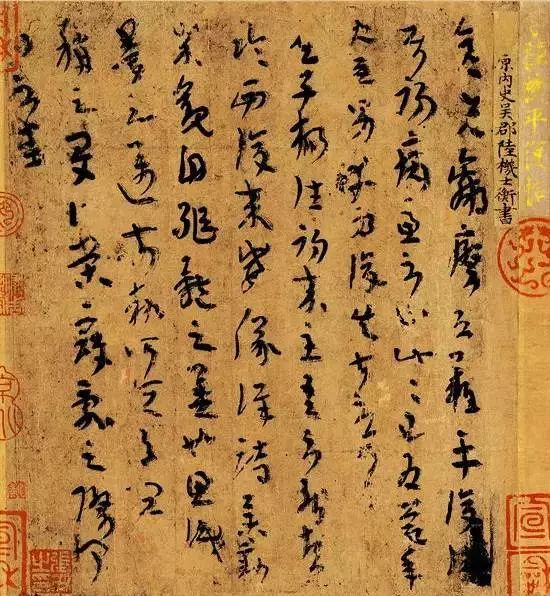 晉陸機平復帖
原內史吳郡陸機士衡書
彦先羸瘵恐難平復往屬
初病慮不止此此已為慶承
使唯男幸為復失前憂耳
吳子楊往初來主吾不能盡
臨西復來威儀詳跱舉動
成觀自軀體之美也思識
量之邁前執所恒有宜
稱之夏伯榮寇亂之際聞
問不悉